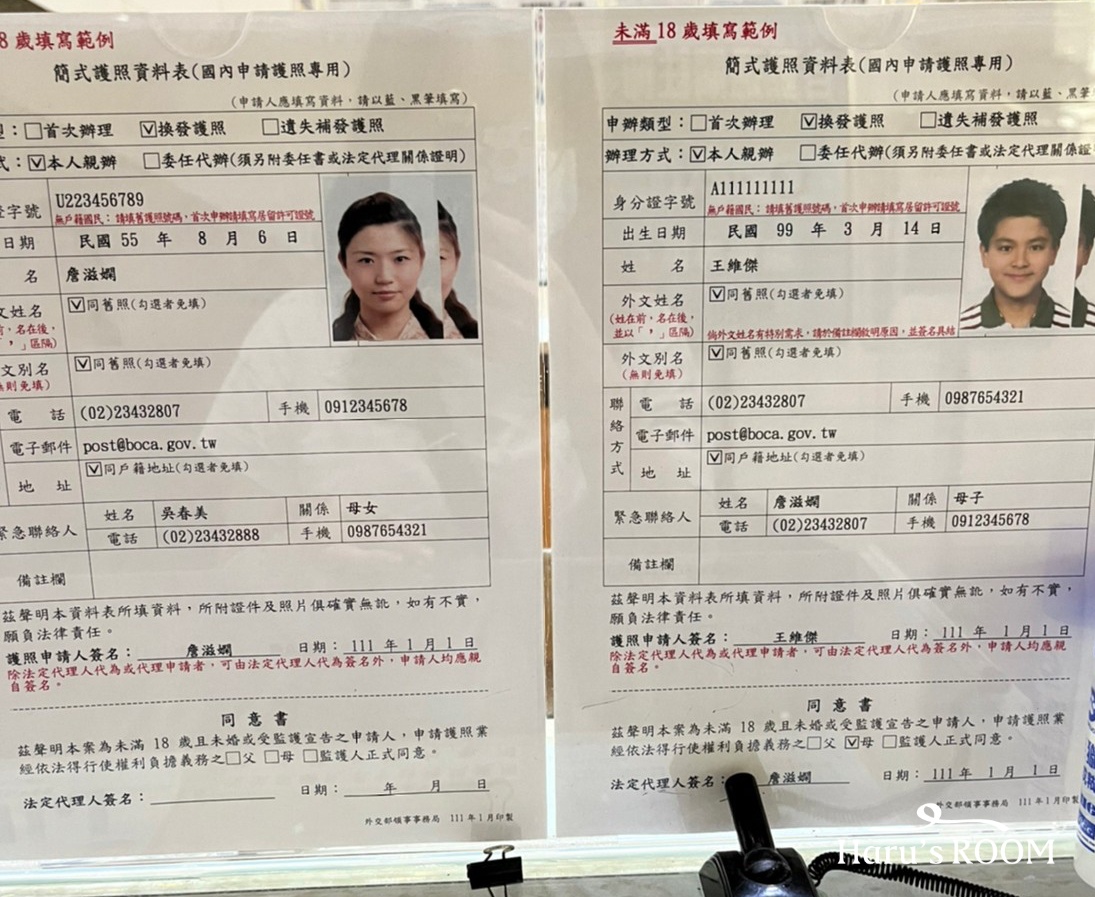 8 歲填寫範例
簡式護照資料表(國內申請護照專用)
(申請人應填寫資料，請以藍、黑筆填寫)
型：□首次辦理 ☑換發護照 □遺失補發護照
式：☑本人親辦 □委任代辦(須另附委任書或法定代理關係證明)
證字號 U223456789
無戶籍國民：請填舊護照號碼，首次申辦請填寫居留許可證號
日期 民國 55 年 8 月 6 日
名 詹滋嫻
文姓名 ☑同舊照(勾選者免填)
前，名在後，
「，」區隔)
文別名 ☑同舊照(勾選者免填)
無則免填)
電 話 (02)23432807 手機 0912345678
電子郵件 post@boca.gov.tw
地 址 ☑同戶籍地址(勾選者免填)
緊急聯絡人 姓名 吳春美 關係 母女
電話 (02)23432888 手機 0987654321
備註欄
茲聲明本資料表所填資料，所附證件及照片俱確實無訛，如有不實，
願負法律責任。
護照申請人簽名： 詹滋嫻 日期： 111 年 1 月 1 日
除法定代理人代為或代理申請者，可由法定代理人代為簽名外，申請人均應親
自簽名。
同 意 書
茲聲明本案為未滿 18 歲且未婚或受監護宣告之申請人，申請護照業
經依法得行使權利負擔義務之□父 □母 □監護人正式同意。
法定代理人簽名： 日期： 年 月 日
外交部領事事務局 111 年 1 月印製
未滿 18 歲填寫範例
簡式護照資料表(國內申請護照專用)
(申請人應填寫資料，請以藍、黑筆填寫
申辦類型：□首次辦理 ☑換發護照 □遺失補發護照
辦理方式：☑本人親辦 □委任代辦(須另附委任書或法定代理關係證明
身分證字號 A111111111
無戶籍國民：請填舊護照號碼，首次申辦請填寫居留許可證號
出生日期 民國 99 年 3 月 14 日
姓 名 王維傑
外文姓名 ☑同舊照(勾選者免填)
(姓在前，名在後，
並以「，」區隔) 倘外文姓名有特別需求，請於備註欄敘明原因，並簽名具結
外文別名 ☑同舊照(勾選者免填)
(無則免填)
聯絡方式 電 話 (02)23432807 手機 0987654321
電子郵件 post@boca.gov.tw
地 址 ☑同戶籍地址(勾選者免填)
緊急聯絡人 姓名 詹滋嫻 關係 母子
電話 (02)23432807 手機 0912345678
備註欄
茲聲明本資料表所填資料，所附證件及照片俱確實無訛，如有不實，
願負法律責任。
護照申請人簽名： 王維傑 日期： 111 年 1 月 1 日
除法定代理人代為或代理申請者，可由法定代理人代為簽名外，申請人均應親
自簽名。
同 意 書
茲聲明本案為未滿 18 歲且未婚或受監護宣告之申請人，申請護照業
經依法得行使權利負擔義務之□父 ☑母 □監護人正式同意。
法定代理人簽名： 詹滋嫻 日期： 111 年 1 月 1 日
外交部領事事務局 111 年 1 月印製
Haru's ROOM